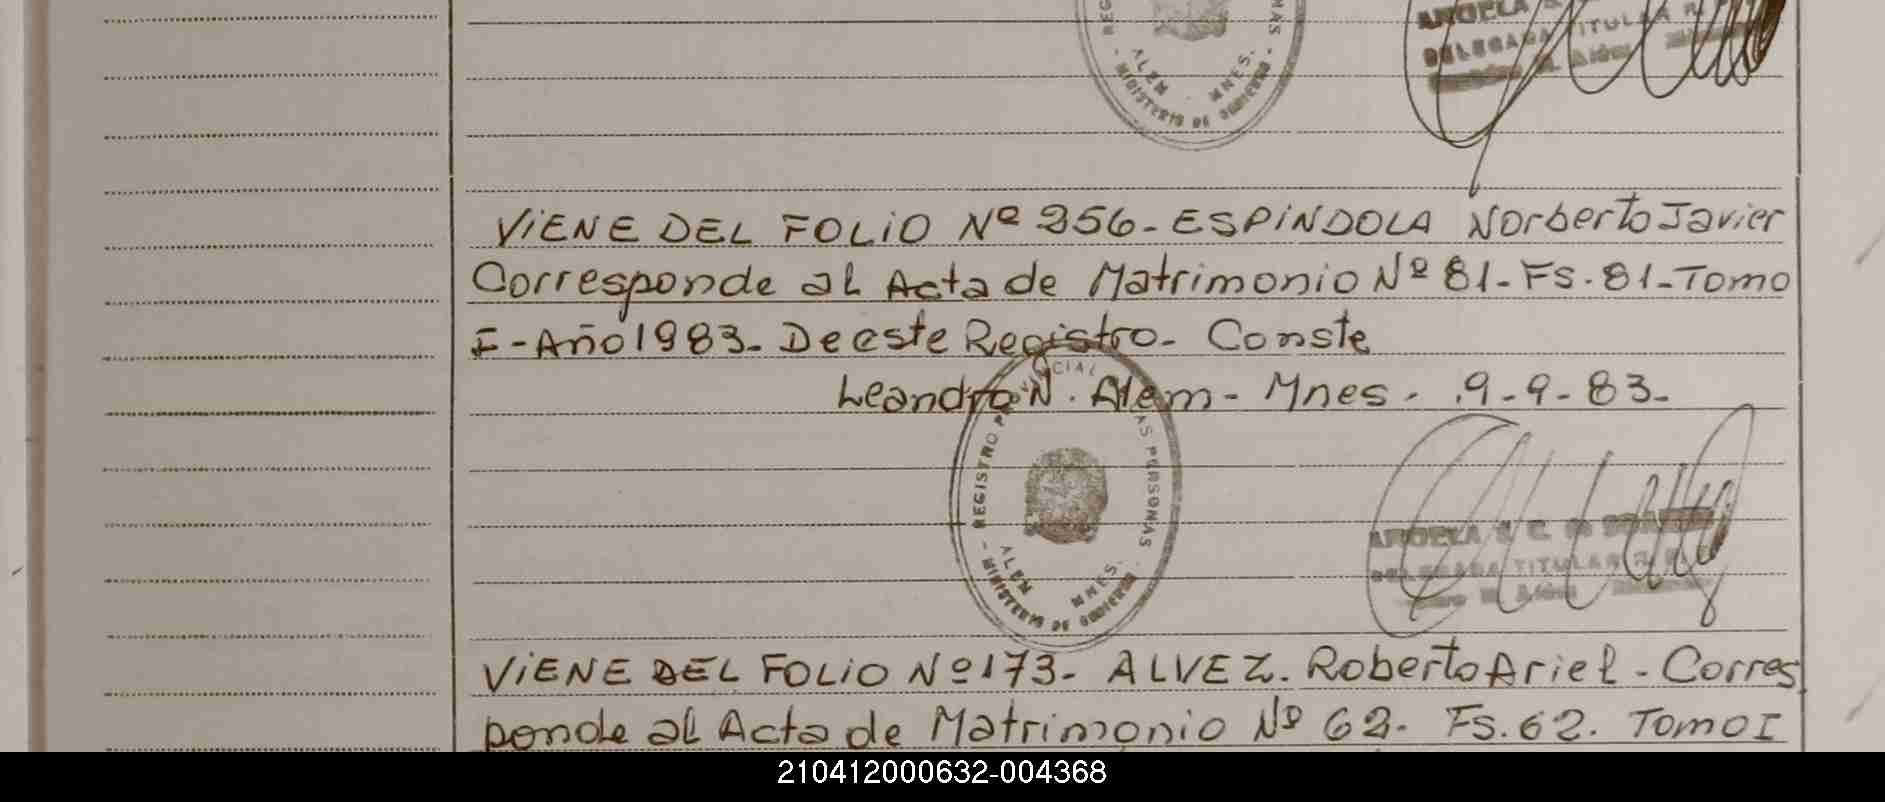 MAS -
ALEM MNES.
- MINISTERIO DE GOBIERNO -
ANGELA
DELEGADA TITULAR R.
VIENE DEL FOLIO Nº 256- ESPINDOLA Norberto Javier
Corresponde al Acta de Matrimonio Nº 81- Fs. 81- Tomo
I - Año 1983- De este Registro- Conste
Leandro N. Alem- Mnes - 9-9-83-
- REGISTRO PROVINCIAL AS PERSONAS
ALEM MNES.
- MINISTERIO DE GOBIERNO -
ANGELA S. C.
DELEGADA TITULAR R.
VIENE DEL FOLIO Nº 173- ALVEZ. Roberto Ariel - Corres
ponde al Acta de Matrimonio Nº 62- Fs. 62. Tomo I
210412000632-004368